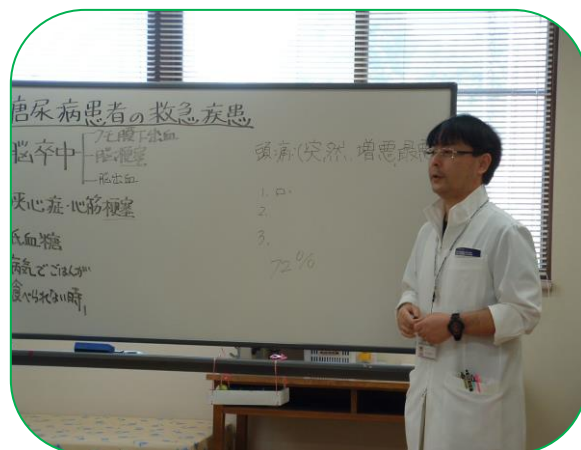 糖尿病患者の救急疾患
脳卒中
クモ膜下出血
脳梗塞
脳出血
狭心症・心筋梗塞
低血糖
病気でごはんが
食べられない時
頭痛(突然、増悪、最悪
1. 口
2.
3.
72%